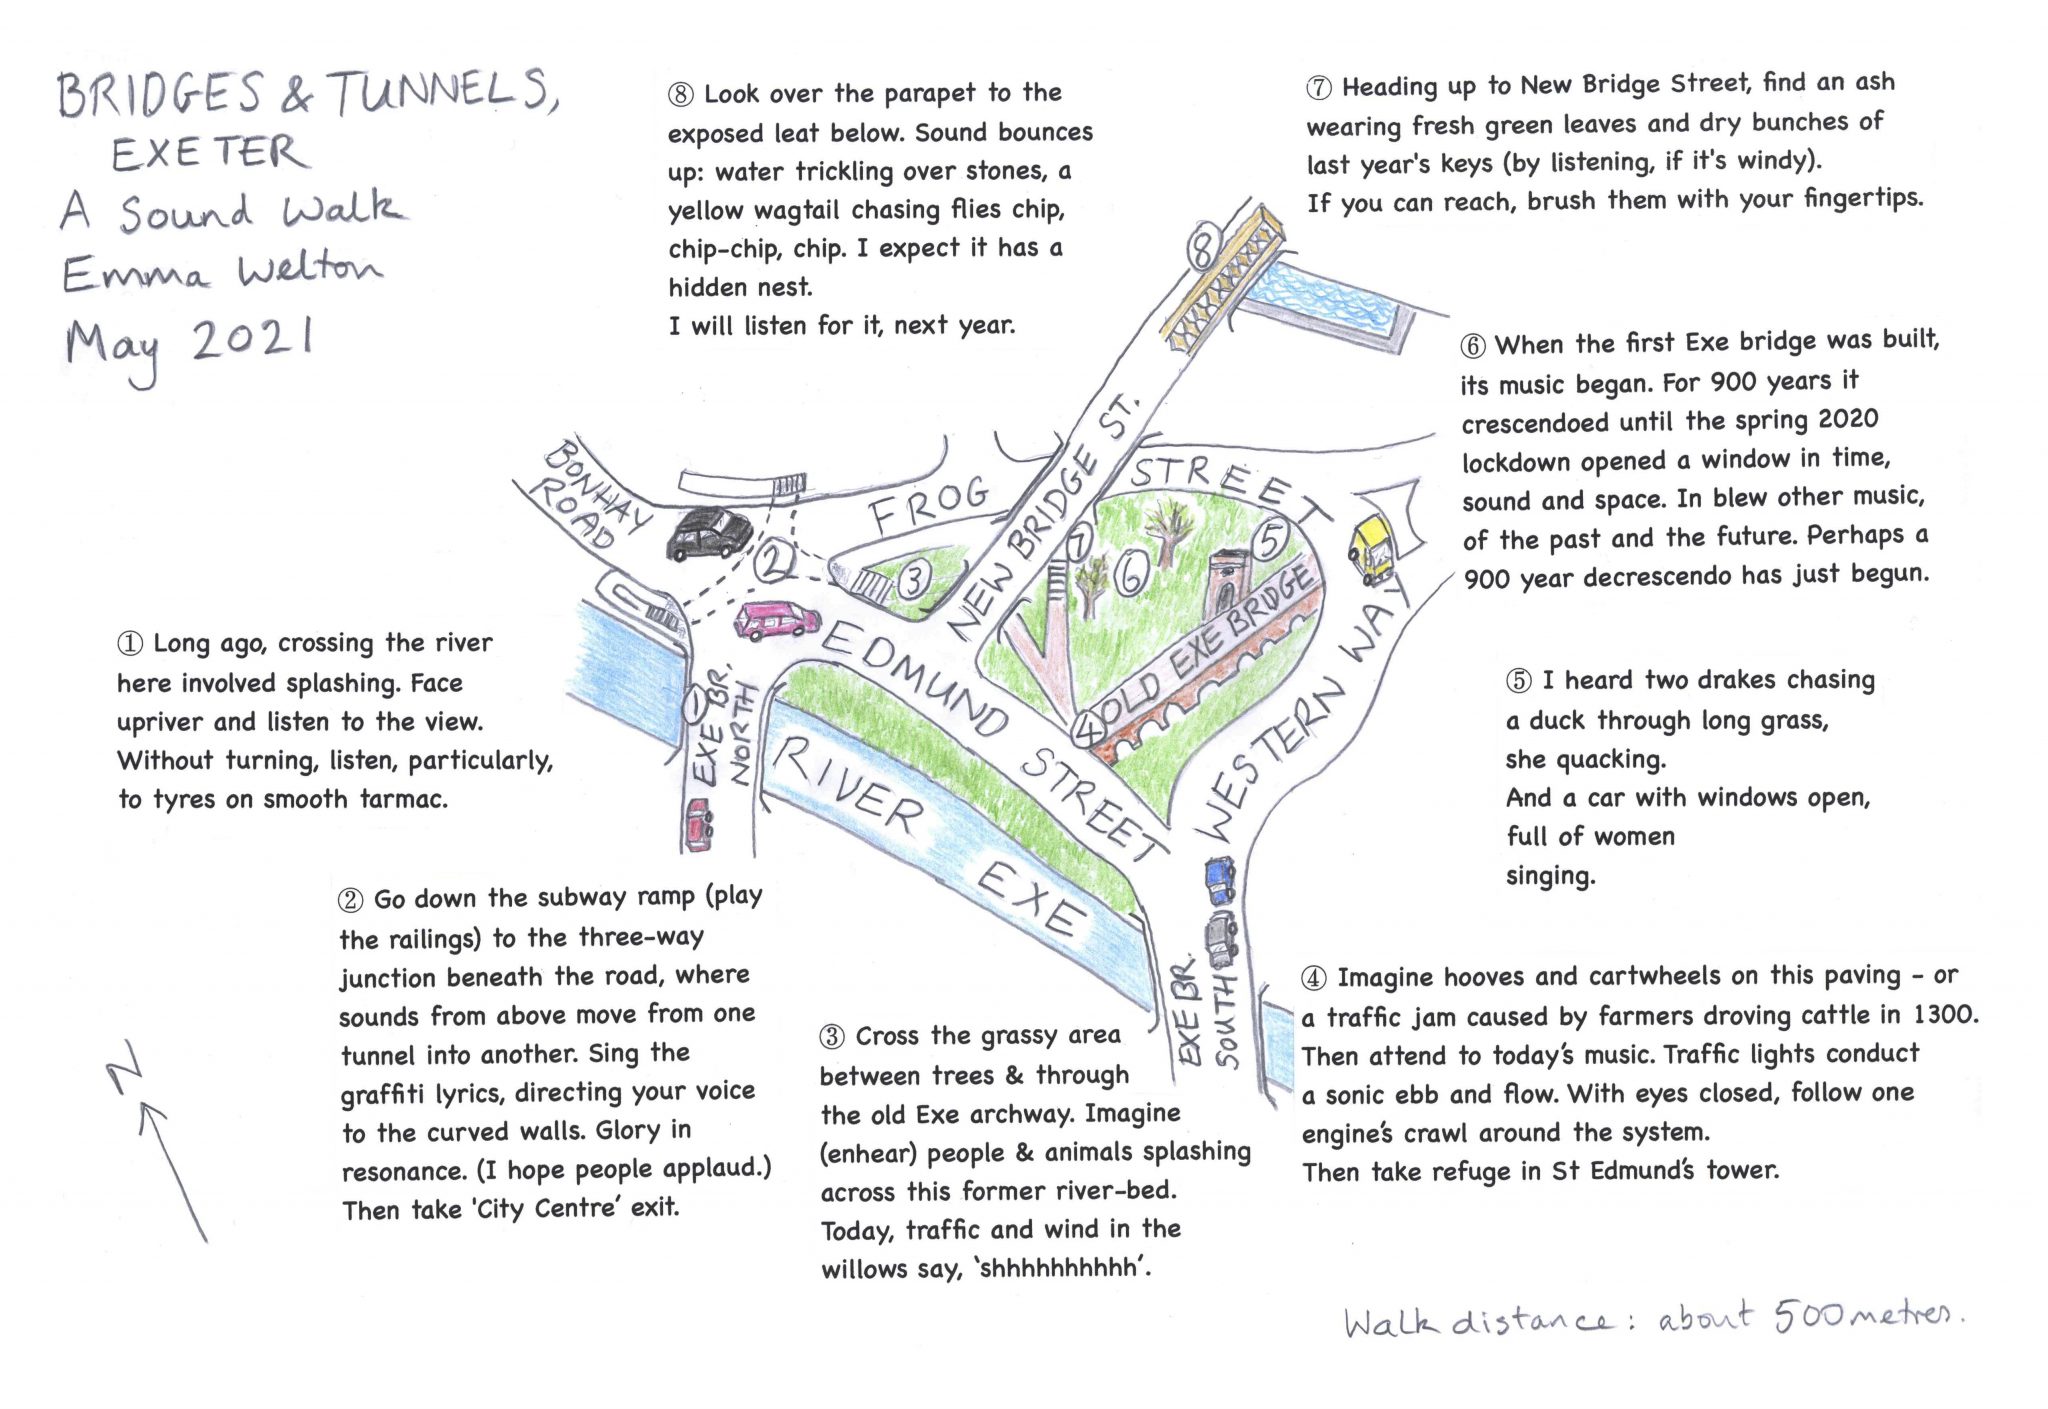 BRIDGES & TUNNELS,
EXETER
A Sound Walk
Emma Welton
May 2021
① Long ago, crossing the river
here involved splashing. Face
upriver and listen to the view.
Without turning, listen, particularly,
to tyres on smooth tarmac.
② Go down the subway ramp (play
the railings) to the three-way
junction beneath the road, where
sounds from above move from one
tunnel into another. Sing the
graffiti lyrics, directing your voice
to the curved walls. Glory in
resonance. (I hope people applaud.)
Then take 'City Centre' exit.
③ Cross the grassy area
between trees & through
the old Exe archway. Imagine
(enhear) people & animals splashing
across this former river-bed.
Today, traffic and wind in the
willows say, 'shhhhhhhhhh'.
④ Imagine hooves and cartwheels on this paving - or
a traffic jam caused by farmers droving cattle in 1300.
Then attend to today's music. Traffic lights conduct
a sonic ebb and flow. With eyes closed, follow one
engine's crawl around the system.
Then take refuge in St Edmund's tower.
⑤ I heard two drakes chasing
a duck through long grass,
she quacking.
And a car with windows open,
full of women
singing.
⑥ When the first Exe bridge was built,
its music began. For 900 years it
crescendoed until the spring 2020
lockdown opened a window in time,
sound and space. In blew other music,
of the past and the future. Perhaps a
900 year decrescendo has just begun.
⑦ Heading up to New Bridge Street, find an ash
wearing fresh green leaves and dry bunches of
last year's keys (by listening, if it's windy).
If you can reach, brush them with your fingertips.
⑧ Look over the parapet to the
exposed leat below. Sound bounces
up: water trickling over stones, a
yellow wagtail chasing flies chip,
chip-chip, chip. I expect it has a
hidden nest.
I will listen for it, next year.
BONHAY
ROAD
FROG
STREET
NEW BRIDGE ST.
EDMUND STREET
OLD EXE BRIDGE
WESTERN WAY
EXE BR.
NORTH
RIVER EXE
EXE BR.
SOUTH
①
②
③
④
⑤
⑥
⑦
⑧
N
Walk distance: about 500 metres.